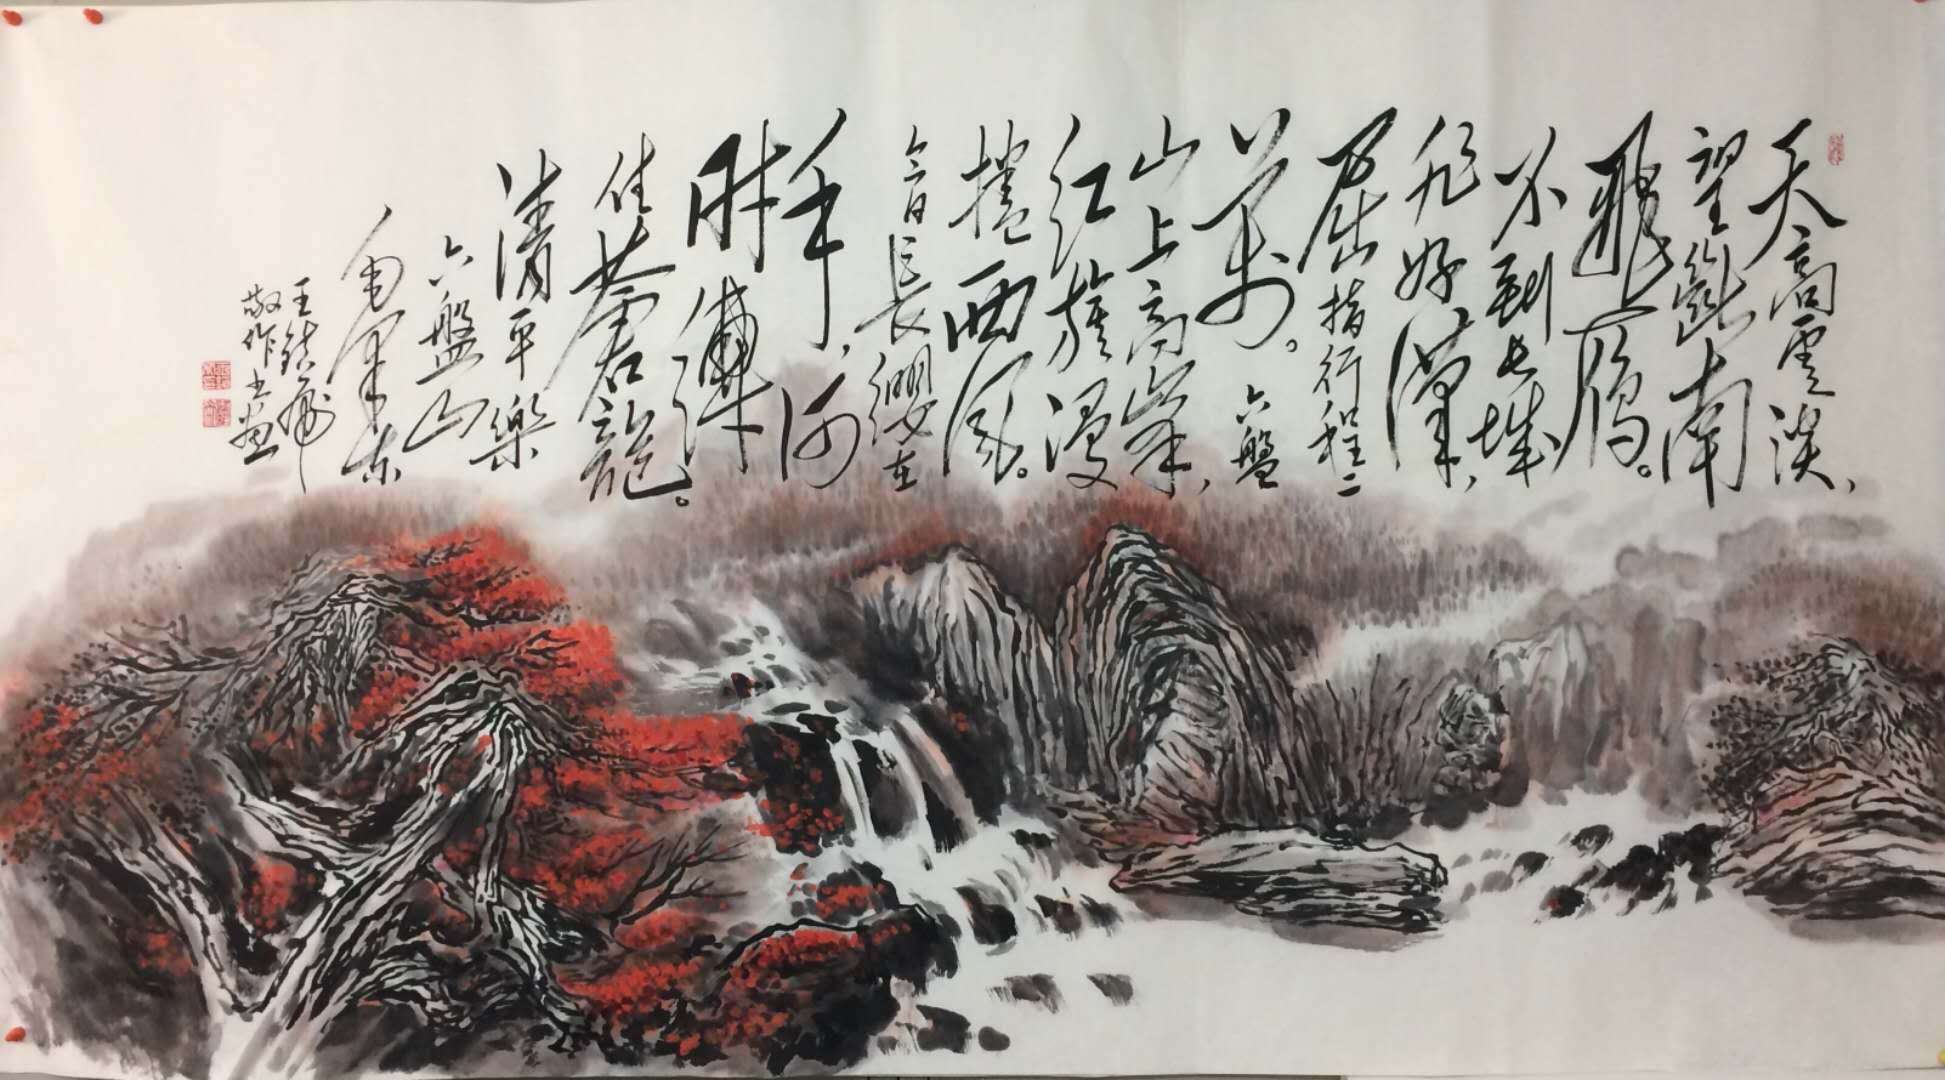 天高雲淡，
望斷南
飛雁。
不到长城
非好漢，
屈指行程二
萬。六盤
山上高峰，
红旗漫
捲西风。
今日長纓在
手，何
时縛
住蒼龍。
清平樂
六盤山
毛泽东
王
敬作书画